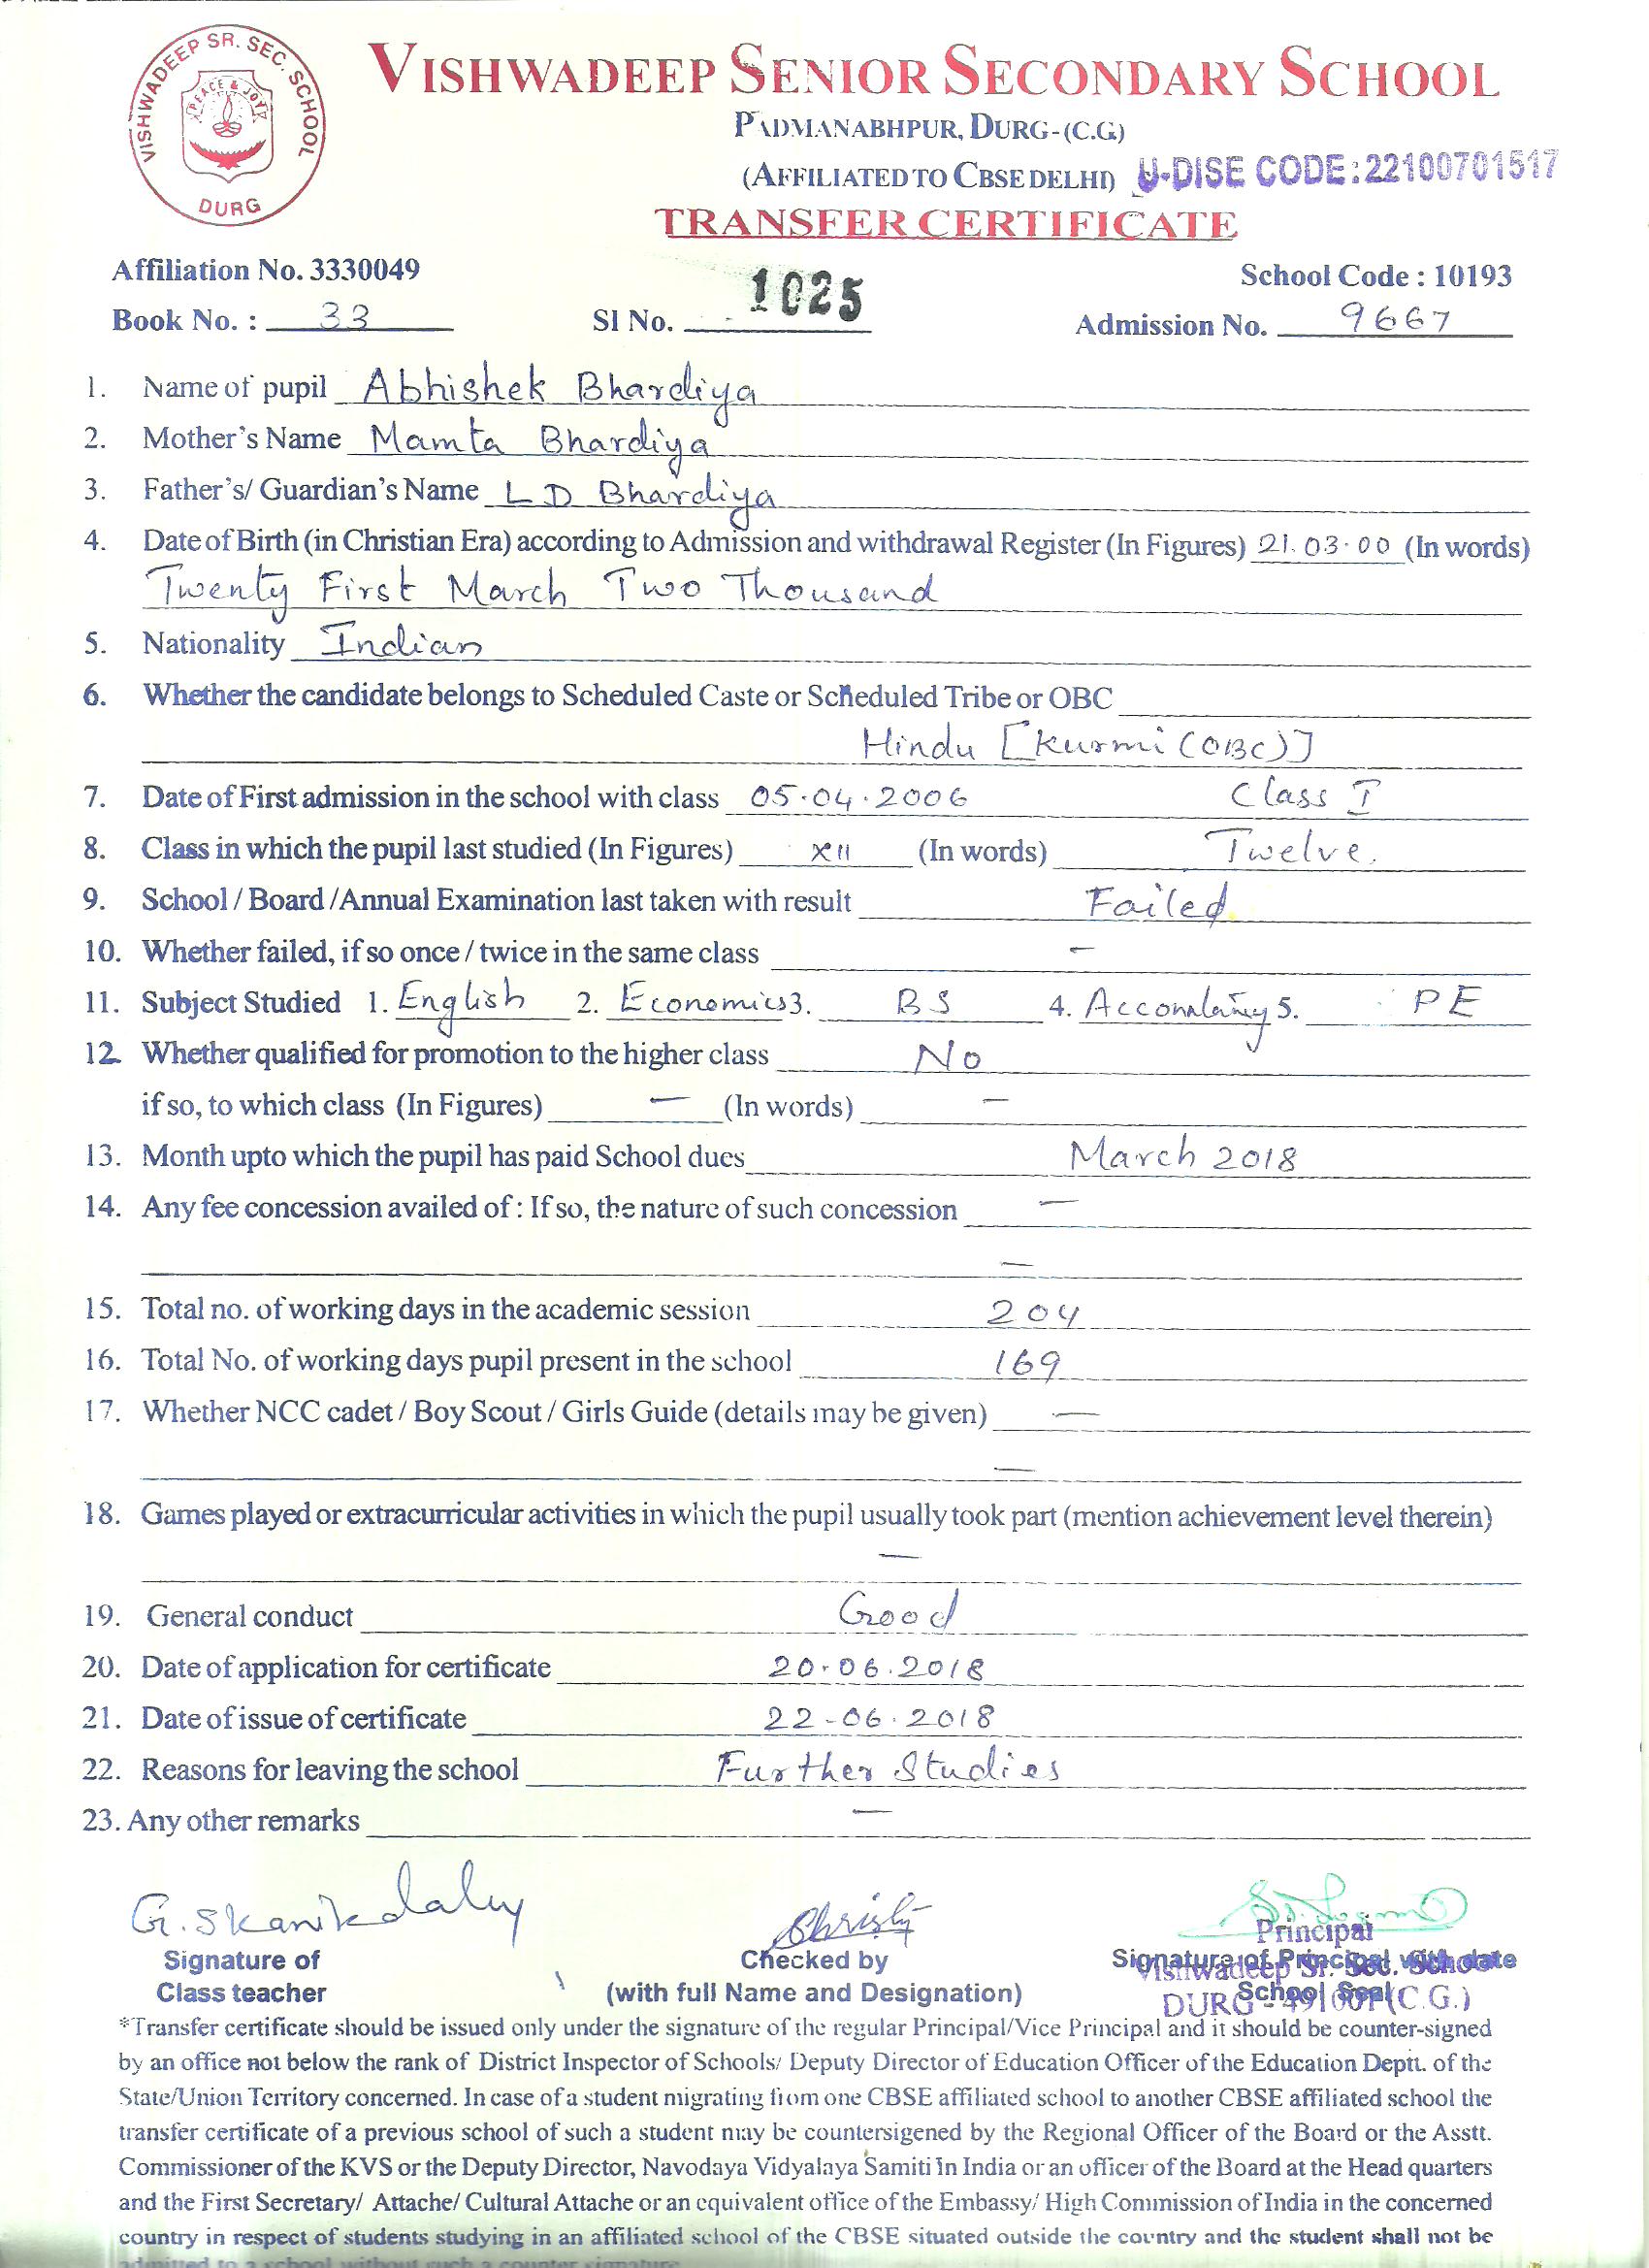 VISHWADEEP SR. SEC. SCHOOL
PEACE & JOY
DURG
VISHWADEEP SENIOR SECONDARY SCHOOL
PADMANABHPUR, DURG-(C.G.)
(AFFILIATED TO CBSE DELHI) U-DISE CODE:22100701517
TRANSFER CERTIFICATE
Affiliation No. 3330049 School Code : 10193
Book No. : 33 Sl No. 1025 Admission No. 9667
1. Name of pupil Abhishek Bhardiya
2. Mother's Name Mamta Bhardiya
3. Father's/ Guardian's Name L D Bhardiya
4. Date of Birth (in Christian Era) according to Admission and withdrawal Register (In Figures) 21.03.00 (In words)
Twenty First March Two Thousand
5. Nationality Indian
6. Whether the candidate belongs to Scheduled Caste or Scheduled Tribe or OBC
Hindu [Kurmi (OBC)]
7. Date of First admission in the school with class 05.04.2006 Class I
8. Class in which the pupil last studied (In Figures) XII (In words) Twelve.
9. School / Board /Annual Examination last taken with result Failed
10. Whether failed, if so once / twice in the same class —
11. Subject Studied 1. English 2. Economics 3. BS 4. Accountancy 5. PE
12. Whether qualified for promotion to the higher class No
if so, to which class (In Figures) — (In words) —
13. Month upto which the pupil has paid School dues March 2018
14. Any fee concession availed of : If so, the nature of such concession —
—
15. Total no. of working days in the academic session 204
16. Total No. of working days pupil present in the school 169
17. Whether NCC cadet / Boy Scout / Girls Guide (details may be given) —
—
18. Games played or extracurricular activities in which the pupil usually took part (mention achievement level therein)
—
19. General conduct Good
20. Date of application for certificate 20.06.2018
21. Date of issue of certificate 22-06.2018
22. Reasons for leaving the school Further Studies
23. Any other remarks —
Christy
Principal
Signature of Checked by Signature of Principal with date
Vishwadeep Sr. Sec. School
Class teacher (with full Name and Designation) School Seal
DURG - 491001 (C.G.)
*Transfer certificate should be issued only under the signature of the regular Principal/Vice Principal and it should be counter-signed
by an office not below the rank of District Inspector of Schools/ Deputy Director of Education Officer of the Education Deptt. of the
State/Union Territory concerned. In case of a student migrating from one CBSE affiliated school to another CBSE affiliated school the
transfer certificate of a previous school of such a student may be countersigned by the Regional Officer of the Board or the Asstt.
Commissioner of the KVS or the Deputy Director, Navodaya Vidyalaya Samiti in India or an officer of the Board at the Head quarters
and the First Secretary/ Attache/ Cultural Attache or an equivalent office of the Embassy/ High Commission of India in the concerned
country in respect of students studying in an affiliated school of the CBSE situated outside the country and the student shall not be
admitted to a school without such a counter signature